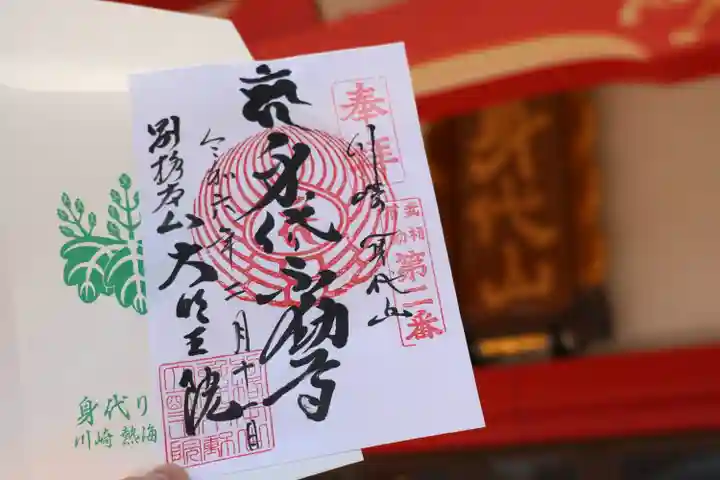 奉拝
川崎身代山
武相
第二番
身代り不動尊
令和六年二月十一日
別格本山大明王院
身代り
川崎 熱海
身代山